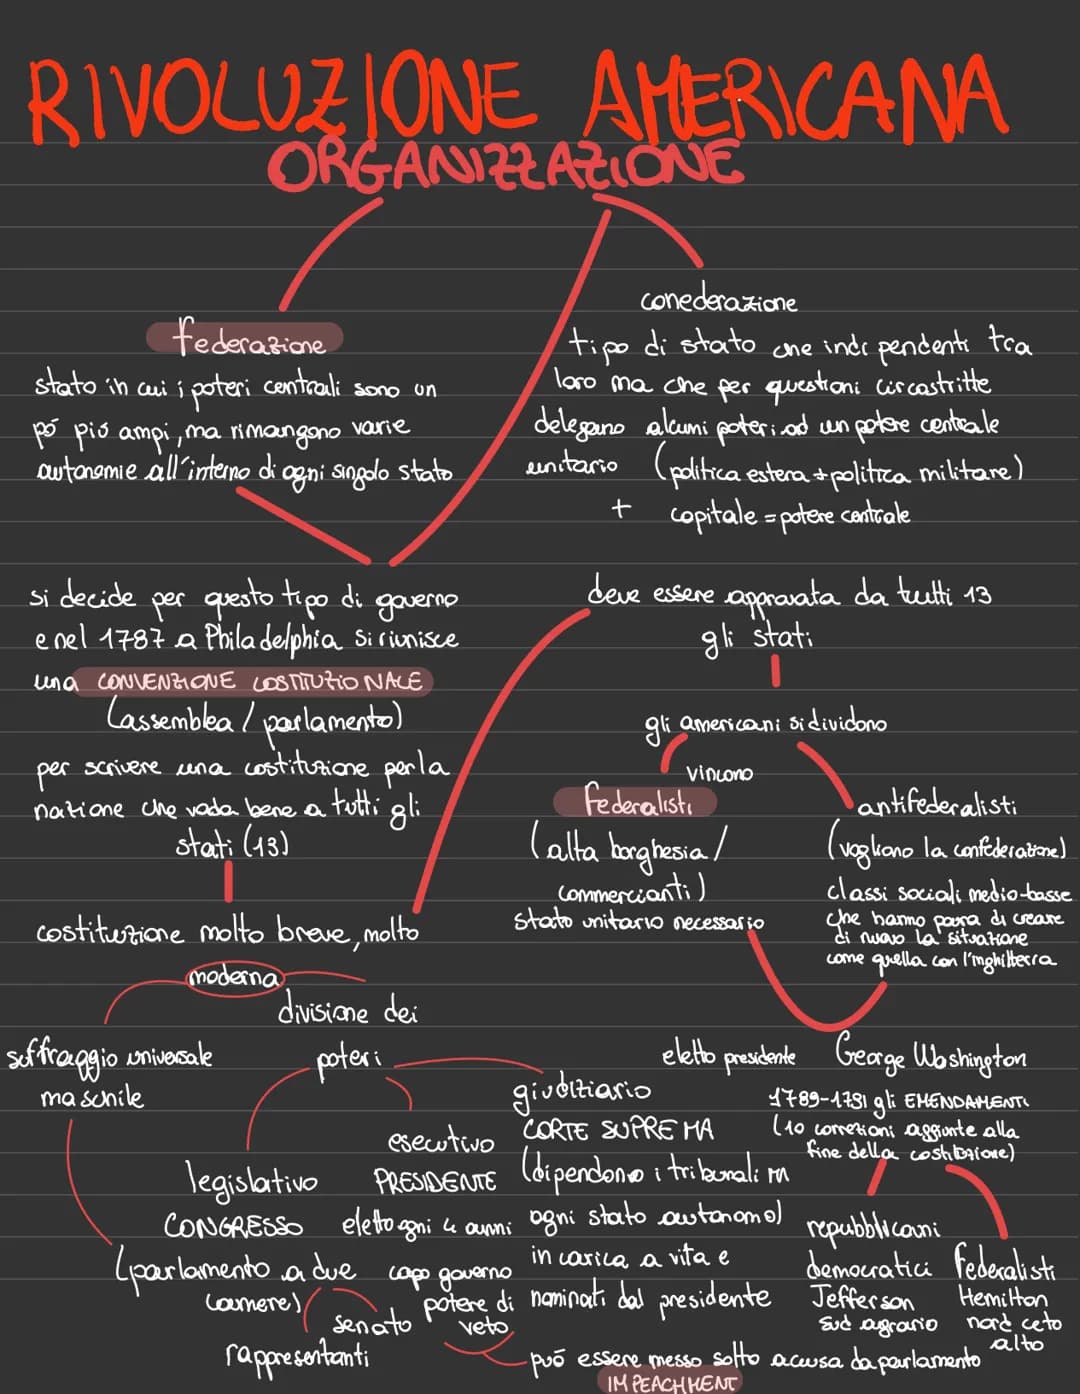 RIVOLUZIONE AMERICANA
ORGANIZZAZIONE
federazione
stato in cui i poteri centrali sono un
pó pió ampi, ma rimangono varie
autonomie all'interno di ogni singolo stato
conederazione
tipo di stato che indi pendenti tra
loro ma che per questioni circastritte
delegano alcumi poteri ad un potere centrale
unitario (politica estera + politica militare)
+ capitale = potere centrale
si decide per questo tipo di governo
e nel 1787 a Philadelphia si riunisce
una CONVENZIONE COSTITUZIONALE
(assemblea / parlamento)
per scrivere una costituzione per la
nazione che vada bene a tutti gli
stati (13)
costituzione molto breve, molto
moderna
deve essere appravata da tutti 13
gli stati
gli americani si dividono
vincono
federalisti
(alta borghesia /
commercianti)
stato unitario necessario
antifederalisti
(vogliono la confederazione)
classi sociali medio-basse
che hanno paura di creare
di nuovo la situazione
come quella con l'inghilterra
suffraggio universale
maschile
divisione dei
poteri
legislativo
CONGRESSO
(parlamento a due
camere)
senato
rappresentanti
esecutivo
PRESIDENTE
eletto ogni 4 anni
capo governo
potere di
veto
giudiziario
CORTE SUPREMA
(dipendono i tribunali in
ogni stato autonomo)
in carica a vita e
nominati dal presidente
può essere messo sotto accusa da parlamento
IMPEACHMENT
eletto presidente George Washington
1789-1791 gli EMENDAMENTI
(10 correzioni aggiunte alla
fine della costituzione)
repubblicani
democratici
Jefferson
sud agrario
federalisti
Hemilton
nord ceto
alto